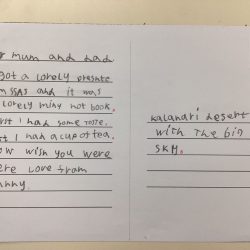 mum and dad
got a lovely presnte
and it was
lovely miny not book.
I had some toste.
I had a cup of tea.
now wish you were
ere love from
kalanari desert
with the big
sky.